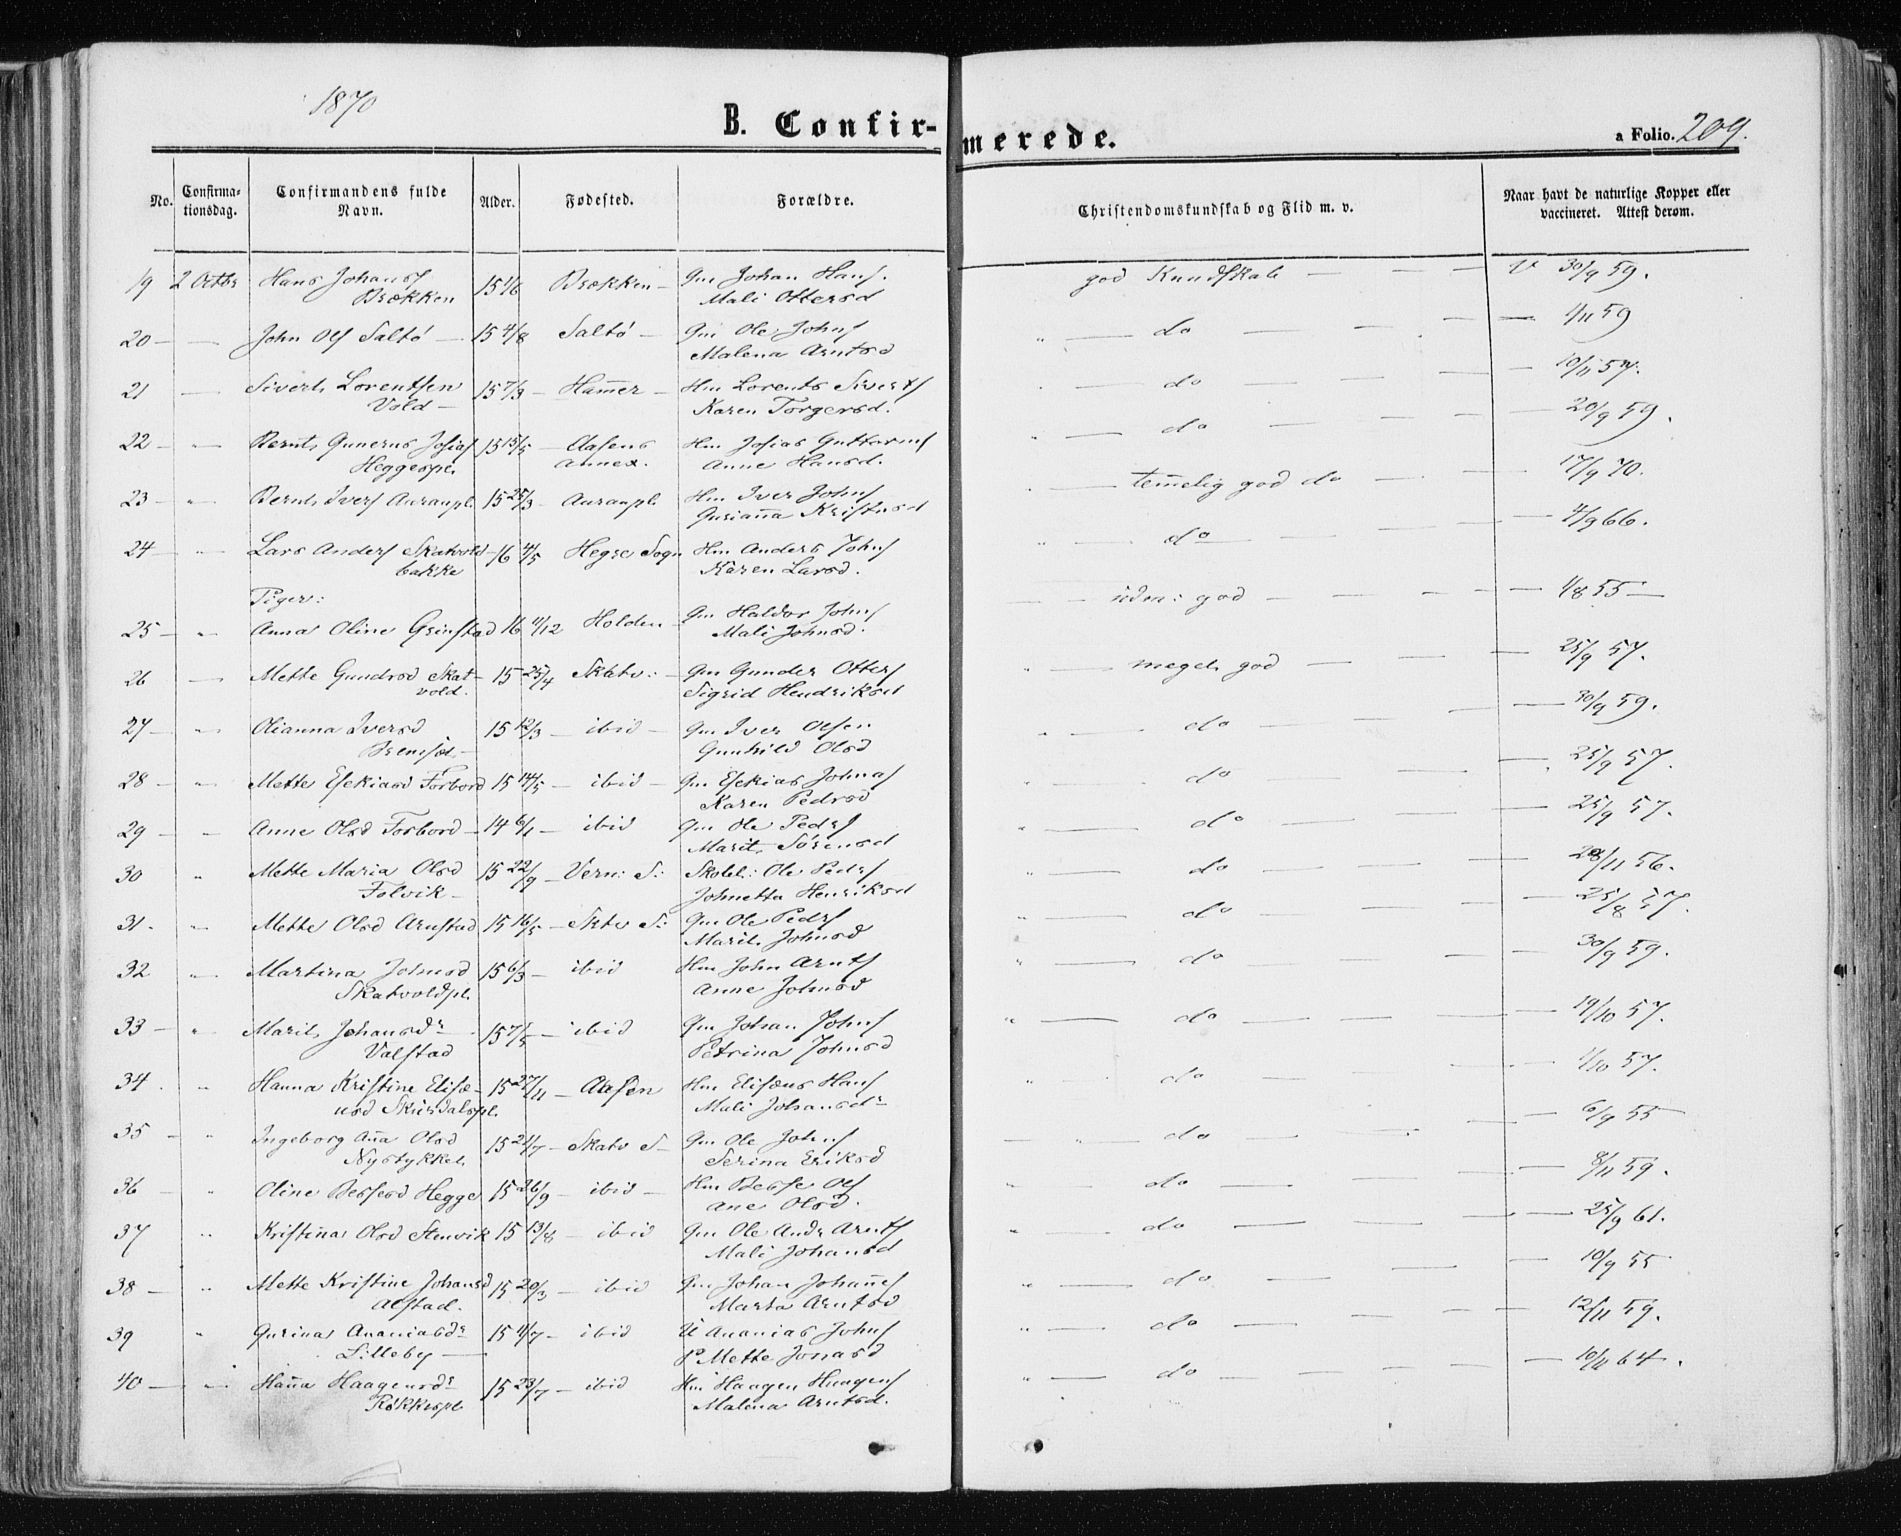 1870
B. Confirmerede.
a Folio. 209.
No. Confirmationsdag. Confirmandens fulde Navn. Alder. Fødested. Forældre. Christendomskundskab og Flid m. v. Naar havt de naturlige Kopper eller vaccineret. Attest derom.
19 2 Octbr Hans Johans 15 1/8 Brækken - Gm Johan Hans. god Kundskab - - - v 30/9 59.
Brækken Mali Ottersd
20 - - John Ols Saltø - 15 4/8 Saltø - Gm Ole Johns " - do - - - - 4/11 59
Malena Arntsd
21 - Sivert Lorentsen 15 7/9 - Hamer - Hm Lorents Siverts - do - - - 10/11 57.
Vold - Karen Torgersd.
22 - " Bernt Gunerus Josias 15 15/5 - Aasens Hm Josias Guttorms " - do - - - - 20/9 59.
Heggespl. annex. Anne Hansd.
23 - " Bernt Ivers Auranpl. 15 25/3 - Auranpl. Hm Iver Johns - temelig god do - - - 17/9 70.
Gurianna Kristnsd
24 - " Lars Anders Skatvold- 16 4/5 Hegre Sogn Hm Anders Johns " - do - - - - 4/9 66.
bakke Karen Larsd.
Piger:
25 - " Anna Oline Grinstad 16 11/12 Holden - Gm Haldor Johns - uden: god - - - - 1/8 55 -
Mali Johnsd.
26 - Mette Gundrsd Skat- 15 25/4 Skatv: - Gm Gunder Otters " - meget god - - - 25/9 57.
vold. Sigrid Hendriksd
27 - " Olianna Iversd 15 12/3 - ibid - Gm Iver Olsen " - do - - - - 30/9 59.
Gunhild Olsd
28 - " Mette Esekiasd Forbord 15 14/5 - ibid - Gm Esekias Johnas - do - - - 25/9 57.
Karen Pedrsd
29 - - Anne Olsd Forbord - 14 6/1 - ibid - Gm Ole Peders " - do - - - 25/9 57.
Marit Sørensd
30 " Mette Maria Olsd 15 22/9 - Vern: S: Skoleh: Ole Peders - do - - - 28/11 56.
Folvik - Johnetta Henriksd
31. " Mette Olsd Arnstad 15 16/5 - Sktv S: Gm Ole Peders " - do - - - 25/8 57.
Marit Johnsd
32 " Martina Johnsd 15 6/3 - ibid Hm John Arnts " - do - - - 30/9 59.
Skatvoldpl. Anne Johnsd
33 - " Marit Johansdr 15 7/5 - ibid Gm Johan Johns " - do - - - 19/10 57.
Valstad Petrina Johnsd
34. " Hanna Kristine Elisæ- 15 27/11 - Aasen Hm Elisæus Hans " - do - - - 1/10 57.
usd Skursdalspl. Mali Johansdr
35 - " Ingeborg Aña Olsd 15 21/7 - Skatv S - Gm Ole Johns - " - do - - - 6/9 55
Nystykket. Serina Eriksd
36 - " Oline Bersesd Hegge 15 26/9 - ibid - Hm Berse Ols - do - - - 8/11 59.
Ane Olsd.
37 " Kristina Olsd Stenvik 15 13/8 - ibid Gm Ole Andr Arnts " - do - - - 25/9 61.
Mali Johansd
38 - " Mette Kristine Johansd 15 20/3 - ibid Gm Johan Johañes " - do - - - 10/9 55
Alstad. Marta Arntsd
39 " Gurina Ananiasdr 15 4/7 - ibid U Ananias Johns " - do - - - 12/11 59.
Lilleby - P Mette Jonasd
40 - " Haña Haagensdr 15 23/7 - ibid Hm Haagen Haagens " - do - - - 10/11 64.
Røkkespl. Malena Arntsd.